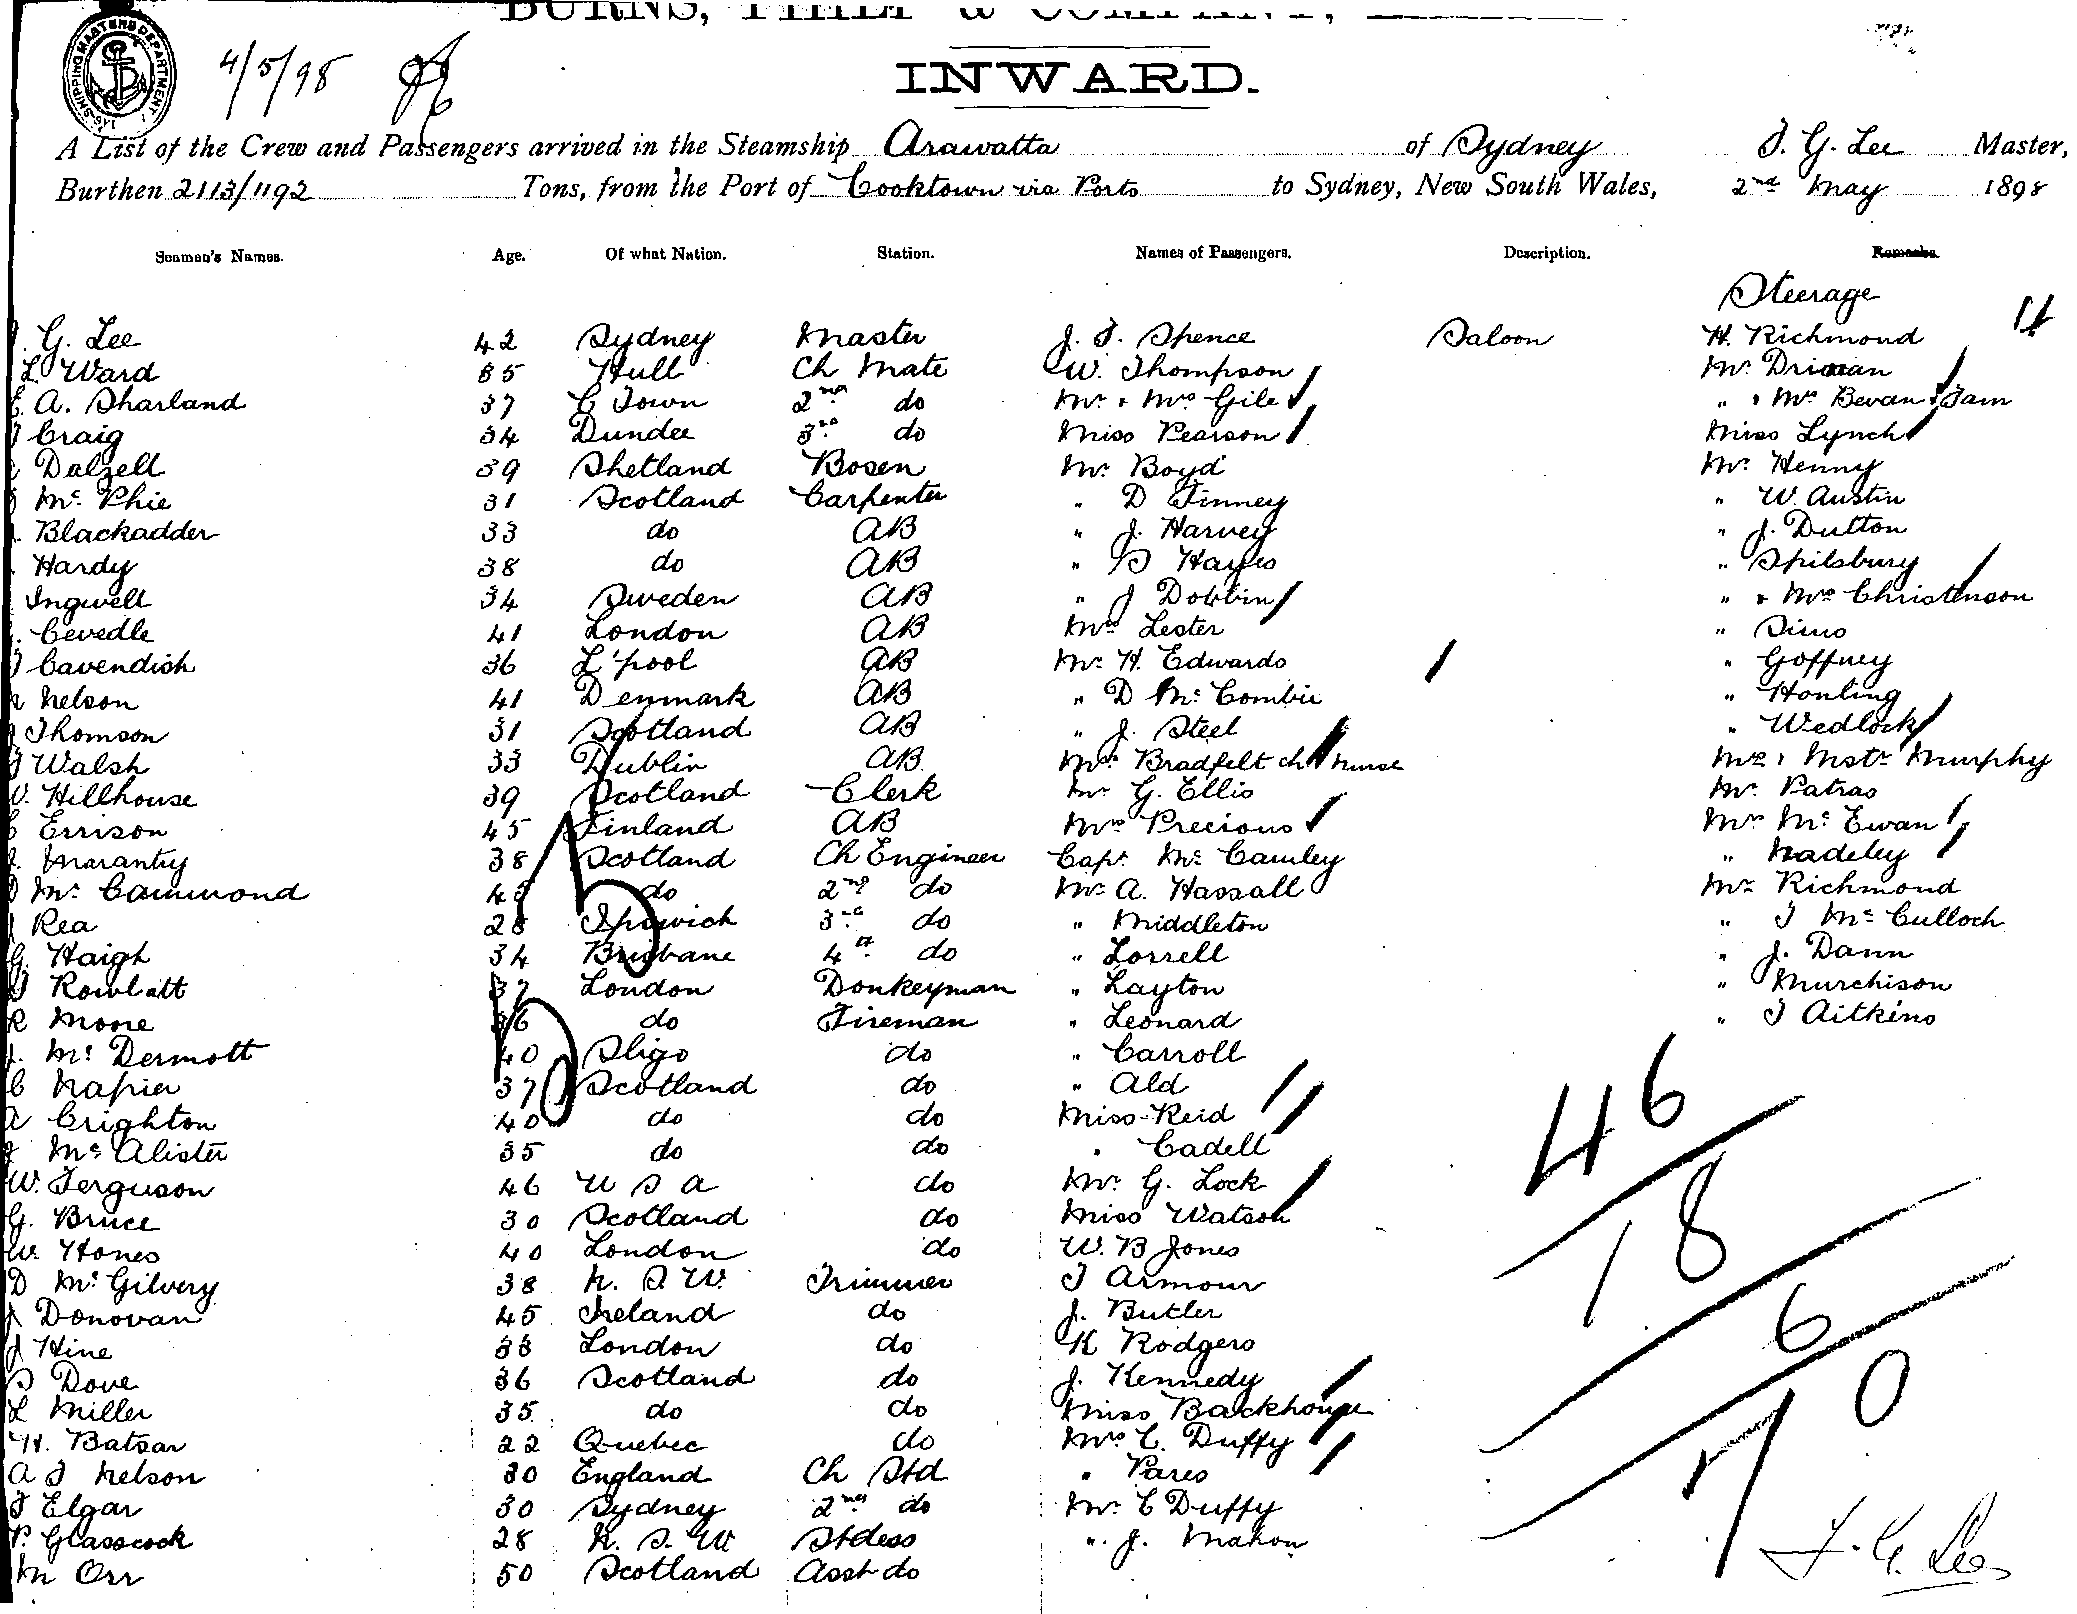 BURNS, PHILP & COMPANY,
4/5/98
INWARD.
A List of the Crew and Passengers arrived in the Steamship Arawatta of Sydney T. G. Lee Master,
Burthen 2113/1192 Tons, from the Port of Cooktown via Ports to Sydney, New South Wales, 2nd May 1898
Seamen's Names. Age. Of what Nation. Station. Names of Passengers. Description. Remarks.
Steerage
G. Lee 42 Sydney Master J. T. Spence Saloon H. Richmond
L. Ward 35 Hull Ch Mate W. Thompson Mr
A. Sharland 37 C Town 2nd do Mr & Mrs Gile " & Mrs Bevan & Fam
Craig 34 Dundee 3rd do Miss Pearson Miss Lynch
Dalzell 39 Shetland Bosen Mr Boyd Mr Henny
Mc Phie 31 Scotland Carpenter " D Finney " W. Austin
Blackadder 33 do AB " J. Harvey " J. Dutton
Hardy 38 do AB " S Hayes " Spilsbury
Ingwell 34 Sweden AB " J Dobbin " & Mrs Christenson
Cevedle 41 London AB Mrs Lester " Sims
Cavendish 36 L'pool AB Mr H. Edwards " Goffney
Nelson 41 Denmark AB " D Mc Combie " Honling
Thomson 31 Scotland AB " J. Steel " Wedlock
Walsh 33 Dublin AB Mrs Bradfelt ch & nurse Mrs & Mstr Murphy
Hillhouse 39 Scotland Clerk Mr G. Ellis Mr Patras
Errison 45 Finland AB Mrs Precious Mrs Mc Ewan
Marantry 38 Scotland Ch Engineer Capt Mc Cauley " Nadeley
Mc Cammond 43 do 2nd do Mr A. Hassall Mr Richmond
Rea 28 Ipswich 3rd do " Middleton " T Mc Culloch
G. Haigh 34 Brisbane 4th do " Lorrell " J. Dann
Rowlatt 37 London Donkeyman " Layton " Murchison
R Moore 36 do Fireman " Leonard " T Aitkins
J. Mc Dermott 40 Sligo do " Carroll
C Napier 37 Scotland do " Ald
A Crighton 40 do do Miss Reid
J Mc Alister 35 do do " Cadell
W. Ferguson 46 U S A do Mr G. Lock
G. Bruce 30 Scotland do Miss Watson
W. Hones 40 London do W. B Jones
D Mc Gilvery 38 N. S. W. Trimmer T Armour
J Donovan 45 Ireland do J. Butler
J Hine 33 London do K Rodgers
S Dove 36 Scotland do J. Kennedy
L Miller 35 do do Miss Backhouse
H. Batsar 22 Quebec do Mrs C. Duffy
A J Nelson 30 England Ch Std " Pares
T Elgar 30 Sydney 2nd do Mr C Duffy
P. Glasscock 28 N. S. W Stdess " J. Mahon
M Orr 50 Scotland Asst do
46
18
6
70
T. G. Lee